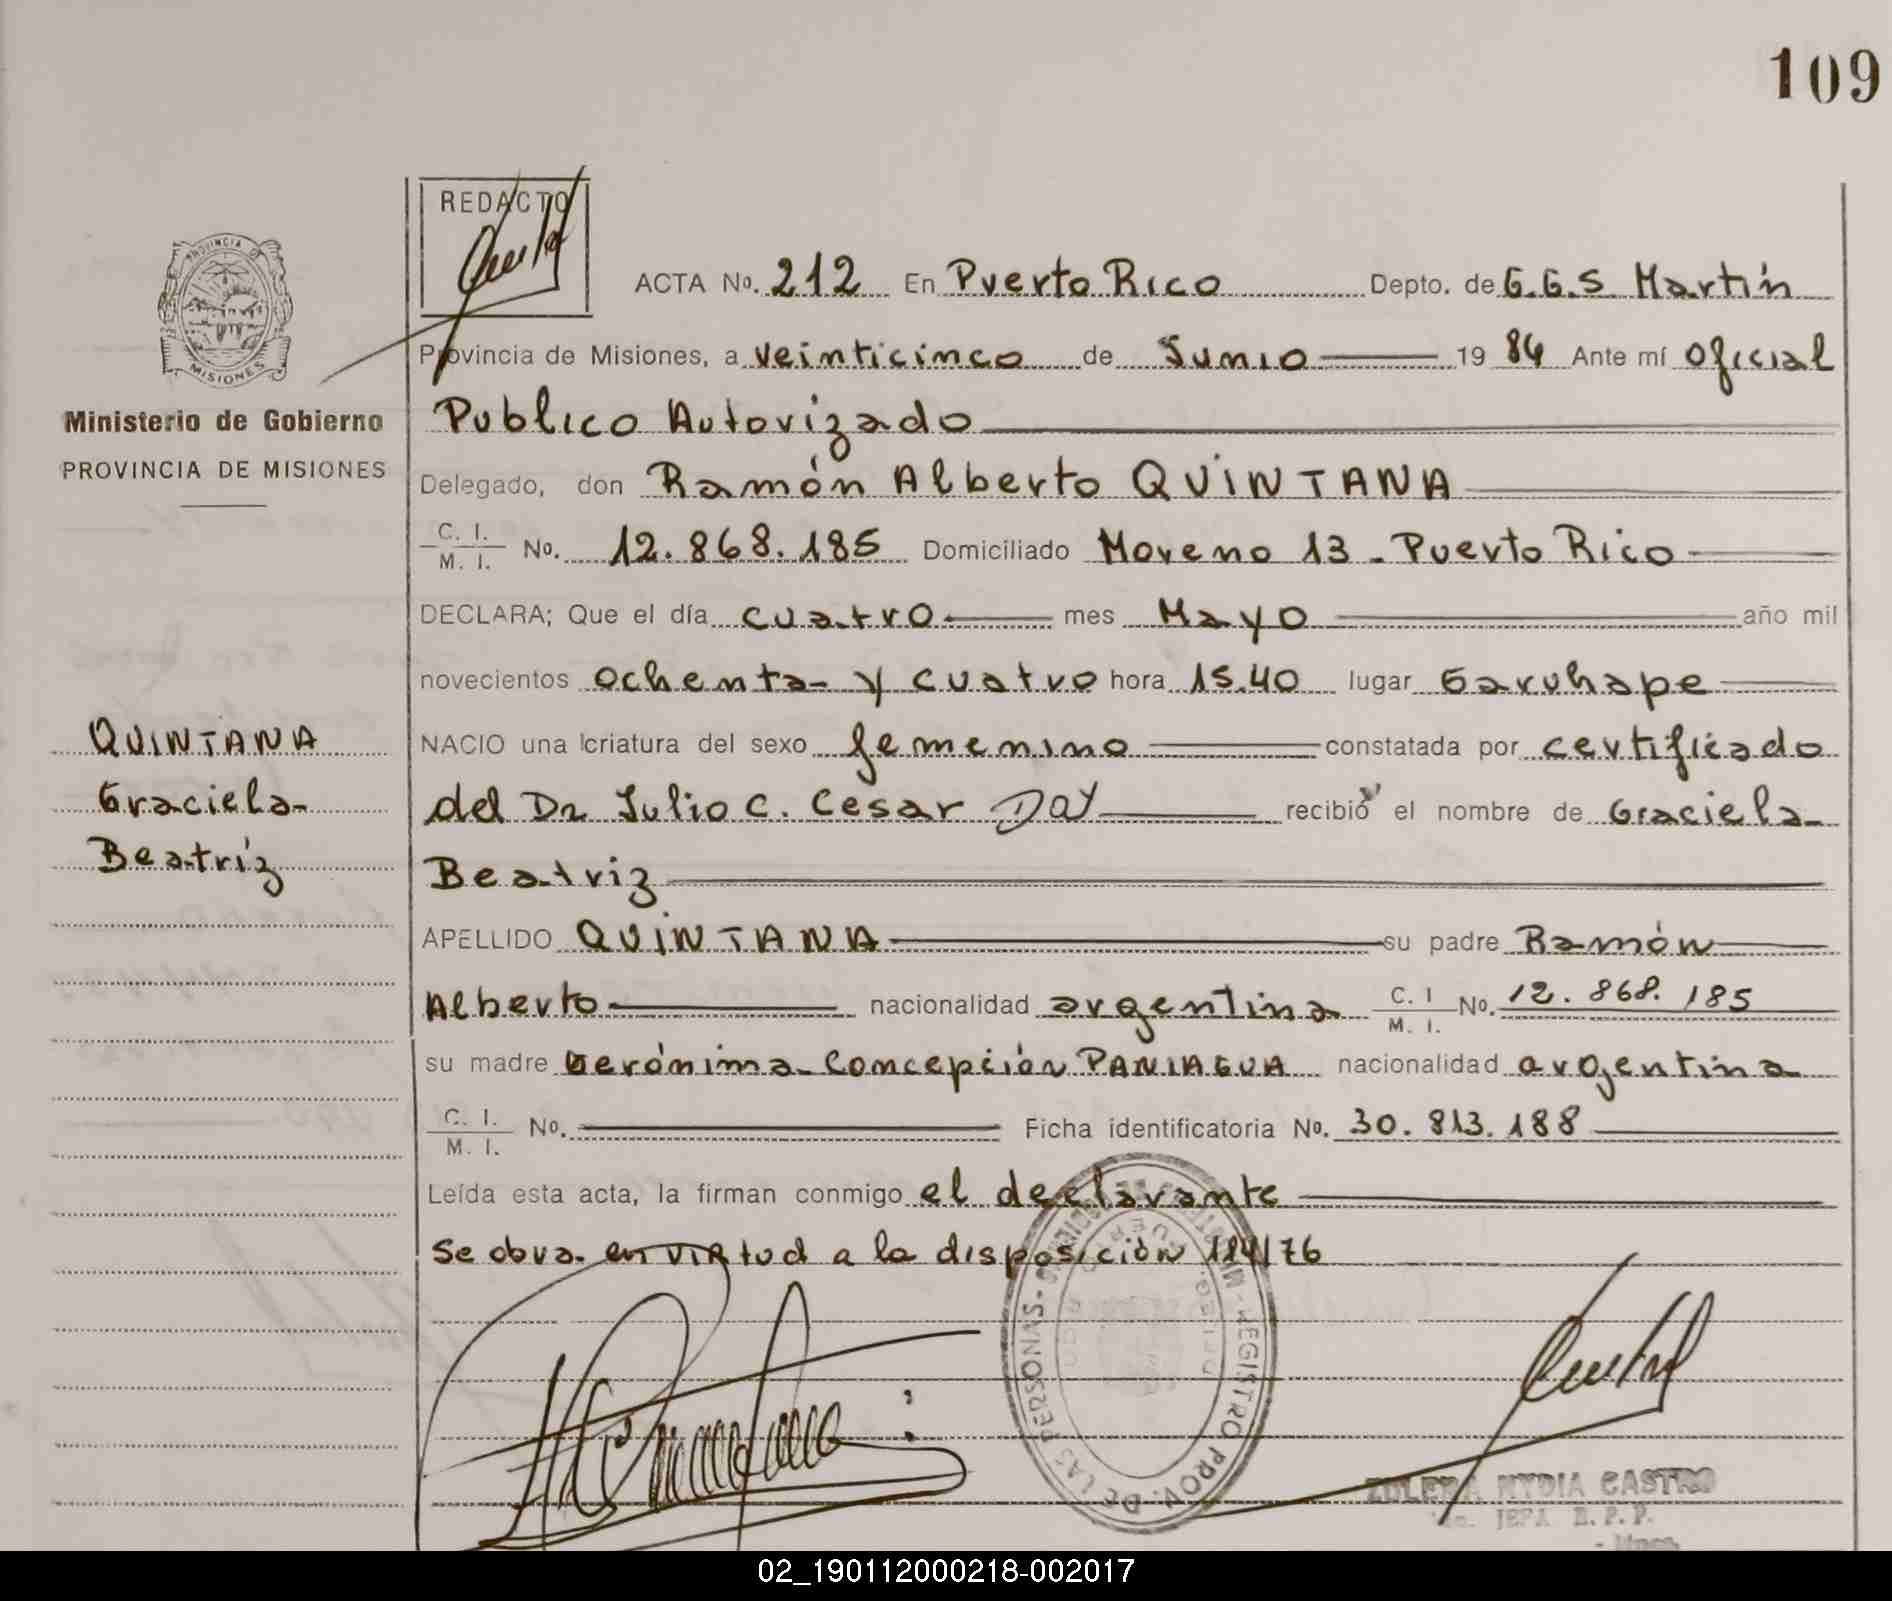 109
REDACTO
ACTA No. 212 En Puerto Rico Depto. de G.G.S Martín
Provincia de Misiones, a veinticinco de Junio 19 84 Ante mí oficial
Publico Autorizado
Delegado, don Ramón Alberto QUINTANA
C. I. M. I. No. 12.868.185 Domiciliado Moreno 13 - Puerto Rico
DECLARA; Que el día cuatro mes Mayo año mil
novecientos ochenta y cuatro hora 15.40 lugar Garuhape
NACIO una criatura del sexo femenino constatada por certificado
del Dr Julio C. Cesar Day recibió el nombre de Graciela
Beatriz
APELLIDO QUINTANA su padre Ramón
Alberto nacionalidad argentina C. I M. I. No. 12.868.185
su madre Gerónima Concepción PANIAGUA nacionalidad argentina
C. I. M. I. No. Ficha identificatoria No. 30.813.188
Leída esta acta, la firman conmigo el declarante
Se obra en virtud a la disposición 184/76
PROVINCIA DE
MISIONES
Ministerio de Gobierno
PROVINCIA DE MISIONES
QUINTANA
Graciela
Beatríz
REGISTRO PROV. DE LAS PERSONAS
NYDIA CASTRO
02_190112000218-002017